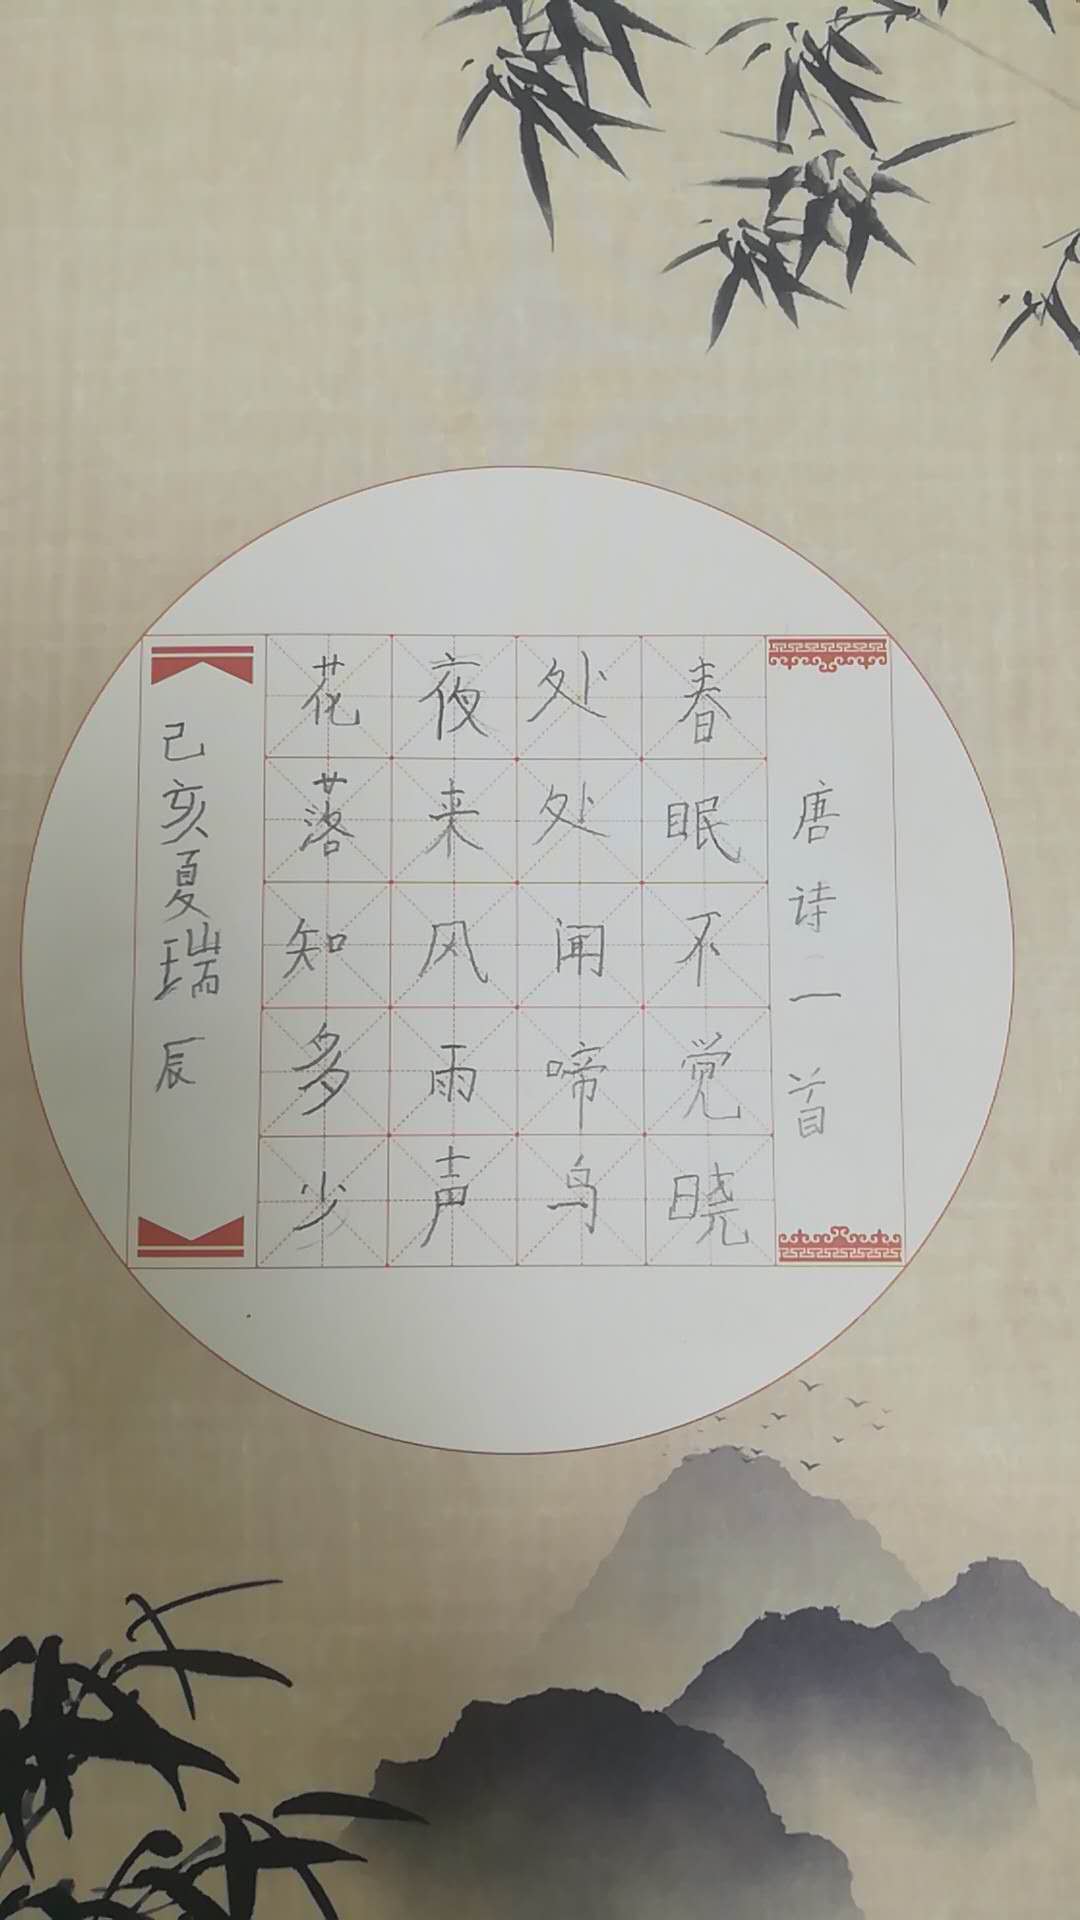 唐诗一首
春眠不觉晓
处处闻啼鸟
夜来风雨声
花落知多少
己亥夏瑞辰